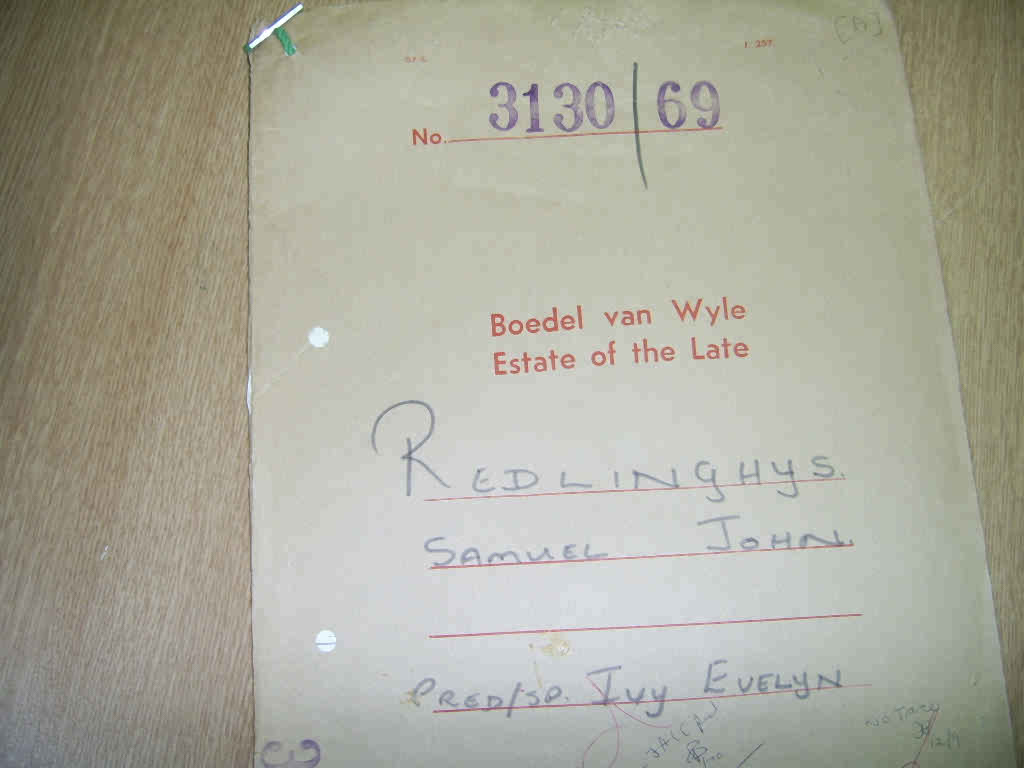 [A]
J 257
3130/69
No.
Boedel van Wyle
Estate of the Late
REDLINGHYS.
SAMUEL JOHN.
PRED/SP. IVY EVELYN
NO TRACE
12/9
3